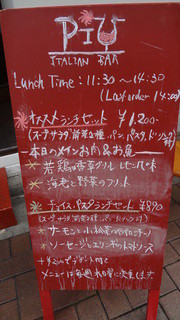 PIU
ITALIAN BAR
Lunch Time: 11:30〜14:30
(Last order 14:00)
オススメランチセット ¥1,200-
(スープ サラダ 前菜2種 パン、パスタ、ドリンク付)
本日のメイン お肉 & お魚
※ 若鶏の香草グリル レモン風味
※ 海老と野菜のフリット
チョイスパスタランチセット ¥890
(スープ サラダ 前菜2種 パン
※ サーモンと小松菜の
※ ソーセージとエリンギのトマトソース
メニューは毎週木曜に変更します